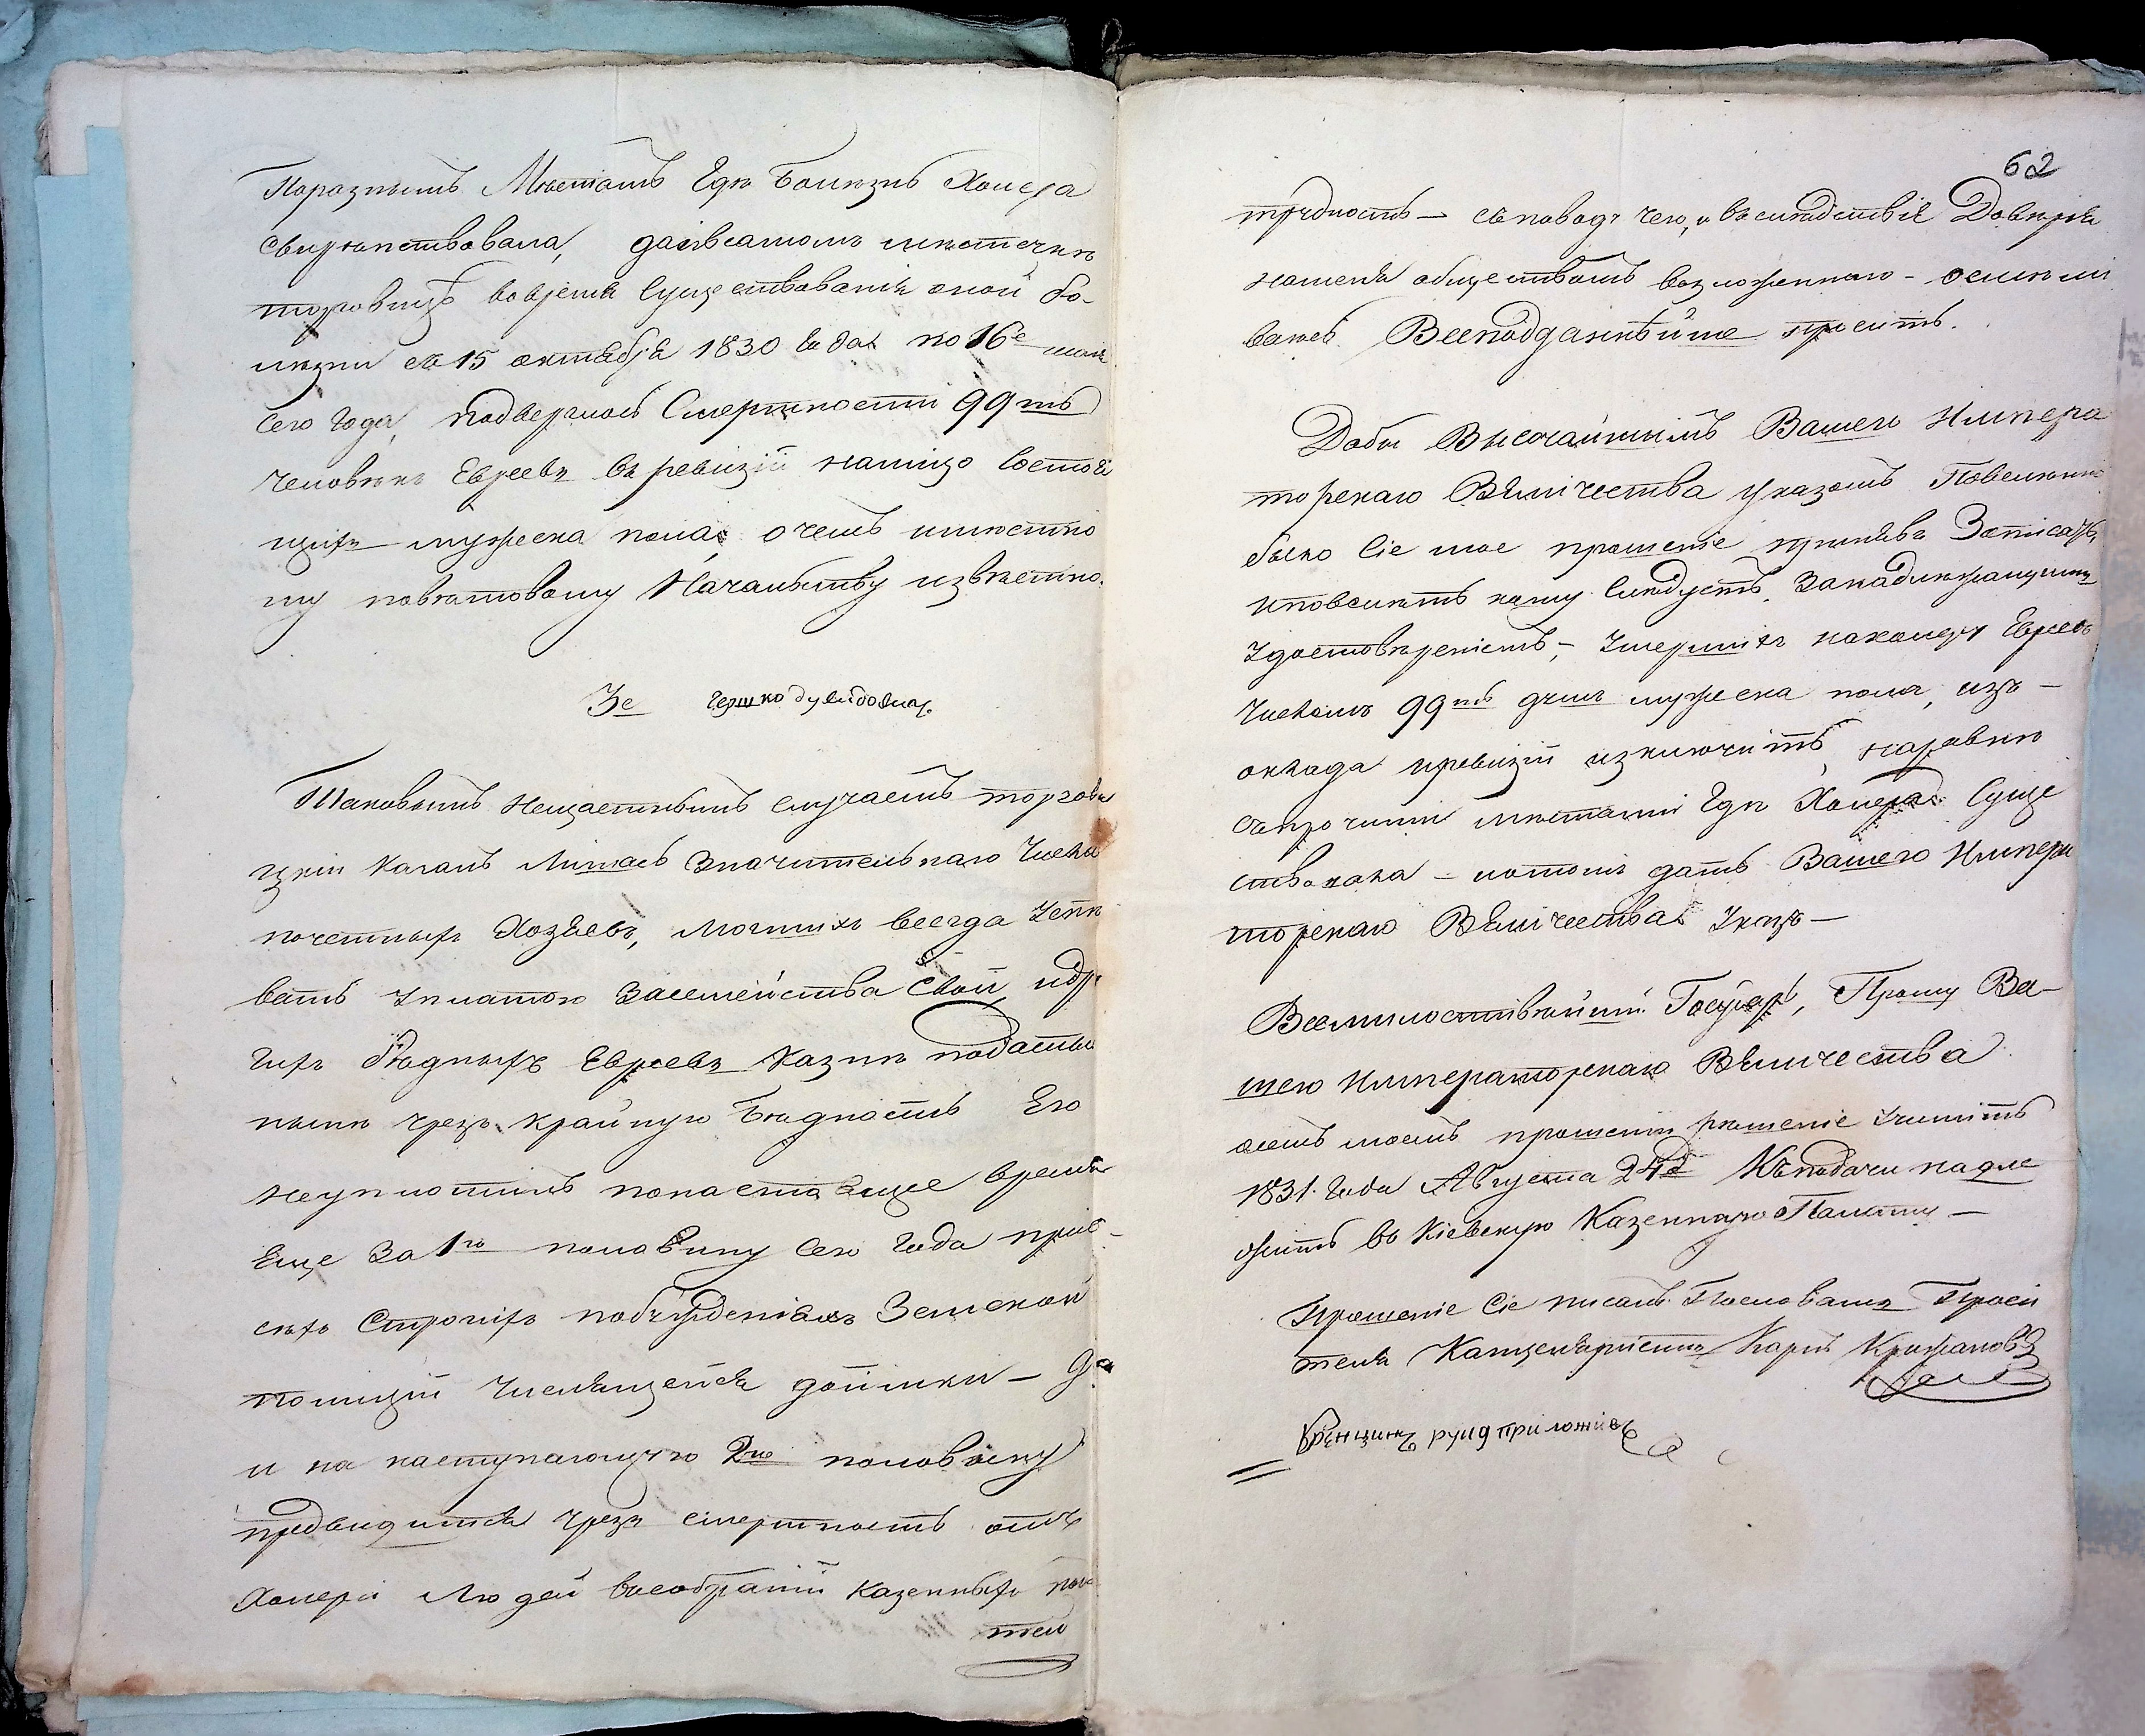 Поразнымъ Мѣстамъ Гдѣ Болѣзнь Холера
свирѣпствовала, даивсамомъ мѣстечкѣ
торговицѣ вовремя Существованія оной бо-
лѣзни съ 15 октября 1830 года по 16е мая
сего года, подверглось Смертности 99ть
человѣкъ Евреевъ въ ревизіи налицо Состоя
щихъ мужеска пола, очемъ имѣстно
му повѣтовому Начальству извѣстно.
3е гершко дувидовичъ
Таковымъ Нещастнымъ случаемъ торгови
цкій Кагалъ Лишась Значительнаго Числа
почетныхъ Хозяевъ, Могшихъ всегда Успѣ
вать Уплатою Засемейства Свои, идру
гихъ бѣдныхъ Евреевъ Казнѣ податьми
ныхъ чрезъ крайную Бѣдность Его
неуплотилъ понастоящее время
Еще За 1ю половину Сего Года при
сихъ Строгихъ побужденіяхъ Земской
полиціи Числящейся доимки — Да
и на наступающую 2ю половину
предвидится чрезъ смертность отъ
Холеры Людей вособраніи казенныхъ пода
тей
62
трудность — споводу чего, и въслѣдствіе Довѣрія
намѣня обществомъ возложеннаго - осмѣли
ваюсь Всеподданнѣйше просить.
Дабы Высочайшимъ Вашего Импера
торскаго Величества указомъ Повелѣнно
было Сіе мое прошеніе принявъ Записать,
иповелѣть кому Слѣдуетъ, Занадлежащимъ
Удостовѣреніемъ, - Умершихъ нахолеру Евреевъ
Числомъ 99ть душъ мужеска пола, изъ —
оклада иревизіи изключить, наравнѣ
съпрочими мѣстами Гдѣ Холера Суще
ствовала — иотомъ дать Вашего Импера
торскаго Величества Указъ —
Всемилостивѣйшій Государь, Прошу Ва-
шего Императорскаго Величества
осемъ моемъ прошеніи рѣшеніе Учинить
1831. Года Августа 24д Къподачи надле
житъ въ Кіевскую Казенную Палату —
Прошеніе Сіе писалъ Пословамъ Проси
теля Канцеляристъ Карпъ Крижановъ
руку приложилъ